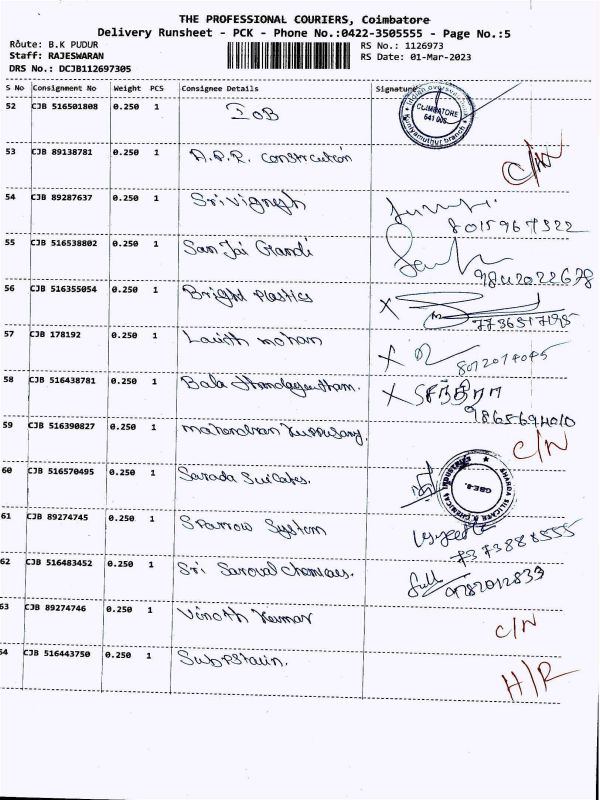 THE PROFESSIONAL COURIERS, Coimbatore
Delivery Runsheet - PCK - Phone No.:0422-3505555 - Page No.:5
Route: B.K PUDUR RS No.: 1126973
Staff: RAJESWARAN RS Date: 01-Mar-2023
DRS No.: DCJB112697305
S No Consignment No Weight PCS Consignee Details Signature
52 CJB 516501808 0.250 1 IOB
COIMBATORE
641 008
Kuniyamuthur branch
53 CJB 89138781 0.250 1 A.P.R. construction C/N
54 CJB 89287637 0.250 1 Srivignesh
8015967322
55 CJB 516538802 0.250 1 Sanjai Gandi
9842022678
56 CJB 516355054 0.250 1 Bright plastics X
57 CJB 178192 0.250 1 Lalith mohan X
58 CJB 516438781 0.250 1 Bala X
9865694010
59 CJB 516390827 0.250 1 C/N
60 CJB 516570495 0.250 1 Sarada
SHARDA SILICATE & CHEMICAL INDUSTRIES
61 CJB 89274745 0.250 1 Sparrow System
7373888555
62 CJB 516483452 0.250 1 Sri chemicals.
9782012833
63 CJB 89274746 0.250 1 Vinoth Kumar C/N
64 CJB 516443750 0.250 1 H/R